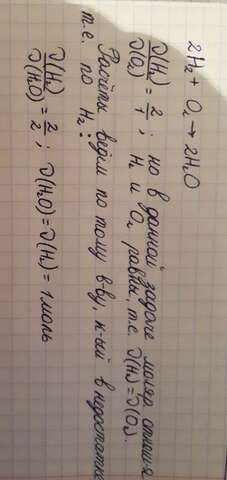 2H₂ + O₂ → 2H₂O
ν(H₂)/ν(O₂) = 2/1; но в данной задаче моляр. отнош-я
H₂ и O₂ равны, т.е. ν(H₂)=ν(O₂).
Расчёты ведём по тому в-ву, к-ый в недостатке
т.е. по H₂:
ν(H₂)/ν(H₂O) = 2/2; ν(H₂O)=ν(H₂)=1моль